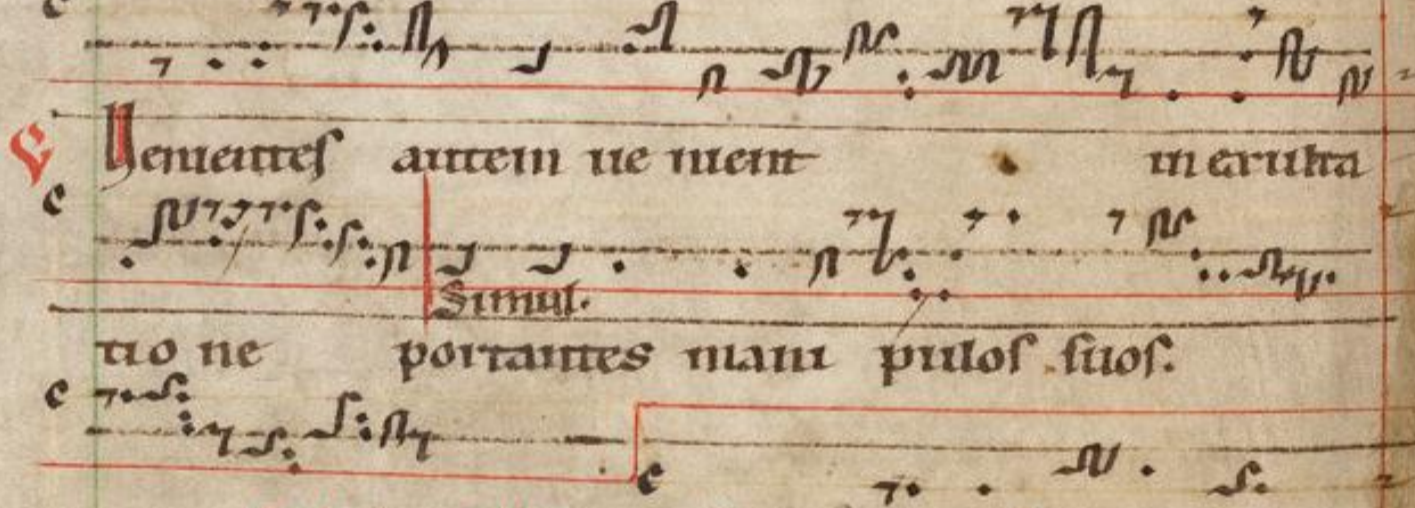 ℣ Venientes autem ue nient in exulta
Simul.
tio ne portantes mani pulos suos.